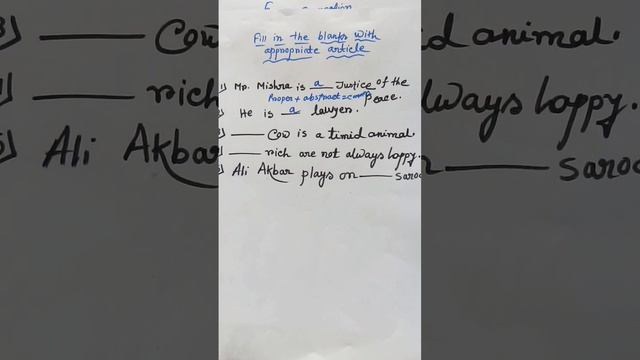 Fill in the blanks with
appropriate article
1) Mr. Mishra is a Justice of the
Proper + abstract = common Peace.
He is a lawyer.
—— Cow is a timid animal.
—— rich are not always happy.
Ali Akbar plays on —— saroo
3) —— Cow
timid animal.
—— rich
always happy.
5) Ali Akbar
—— saroo